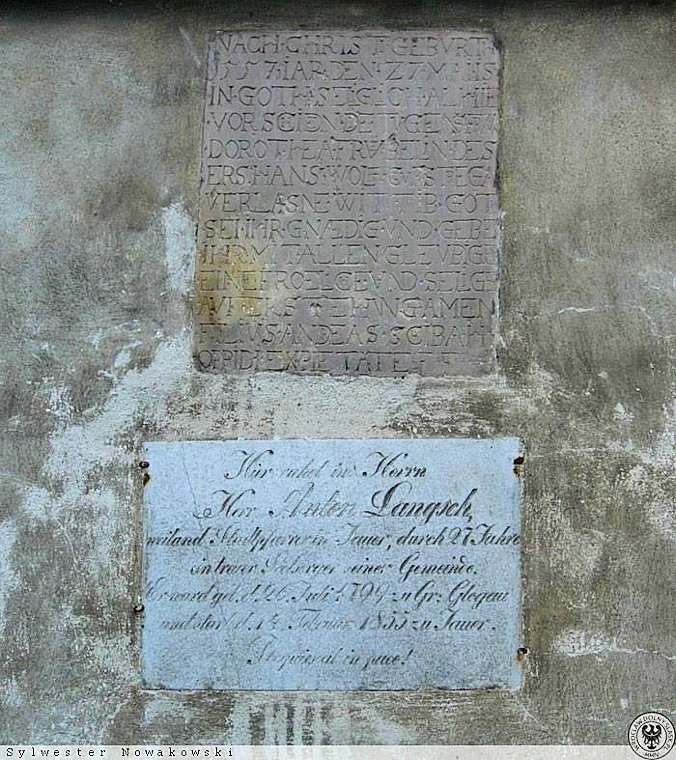 NACH·CHRIST·GEBVRT·
1557·IAR·DEN·27·MAI·IS
IN·GOT·SELGLCH·ALHIE
VORSCIEN·DE·TVGENS
DOROTHEA·FRVBELIN·DES
ERS·HANS·WOLF
VERLASNE·WITTIB·GOT
SEI·IHR·GNÆDIG·VND·GEBE
IHR·MIT·ALLEN·GLEVBIGE
EINE·FROELGE·VND·SELGE
AVFERSTEHUNG·AMEN
FILIUS·ANDEAS·SCIBA
OPPIDI·EX·PIETATE
Hier ruhet in Herrn
Herr Anton Langsch,
weiland Stadtpfarrer in Jauer, durch 27 Jahre
ein treuer Seelsorger seiner Gemeinde.
Er ward geb. d. 26. Juli 1799 zu Gr: Glogau
und starb d. 14. Februar 1855 zu Jauer.
Requiescat in pace!
Sylwester Nowakowski